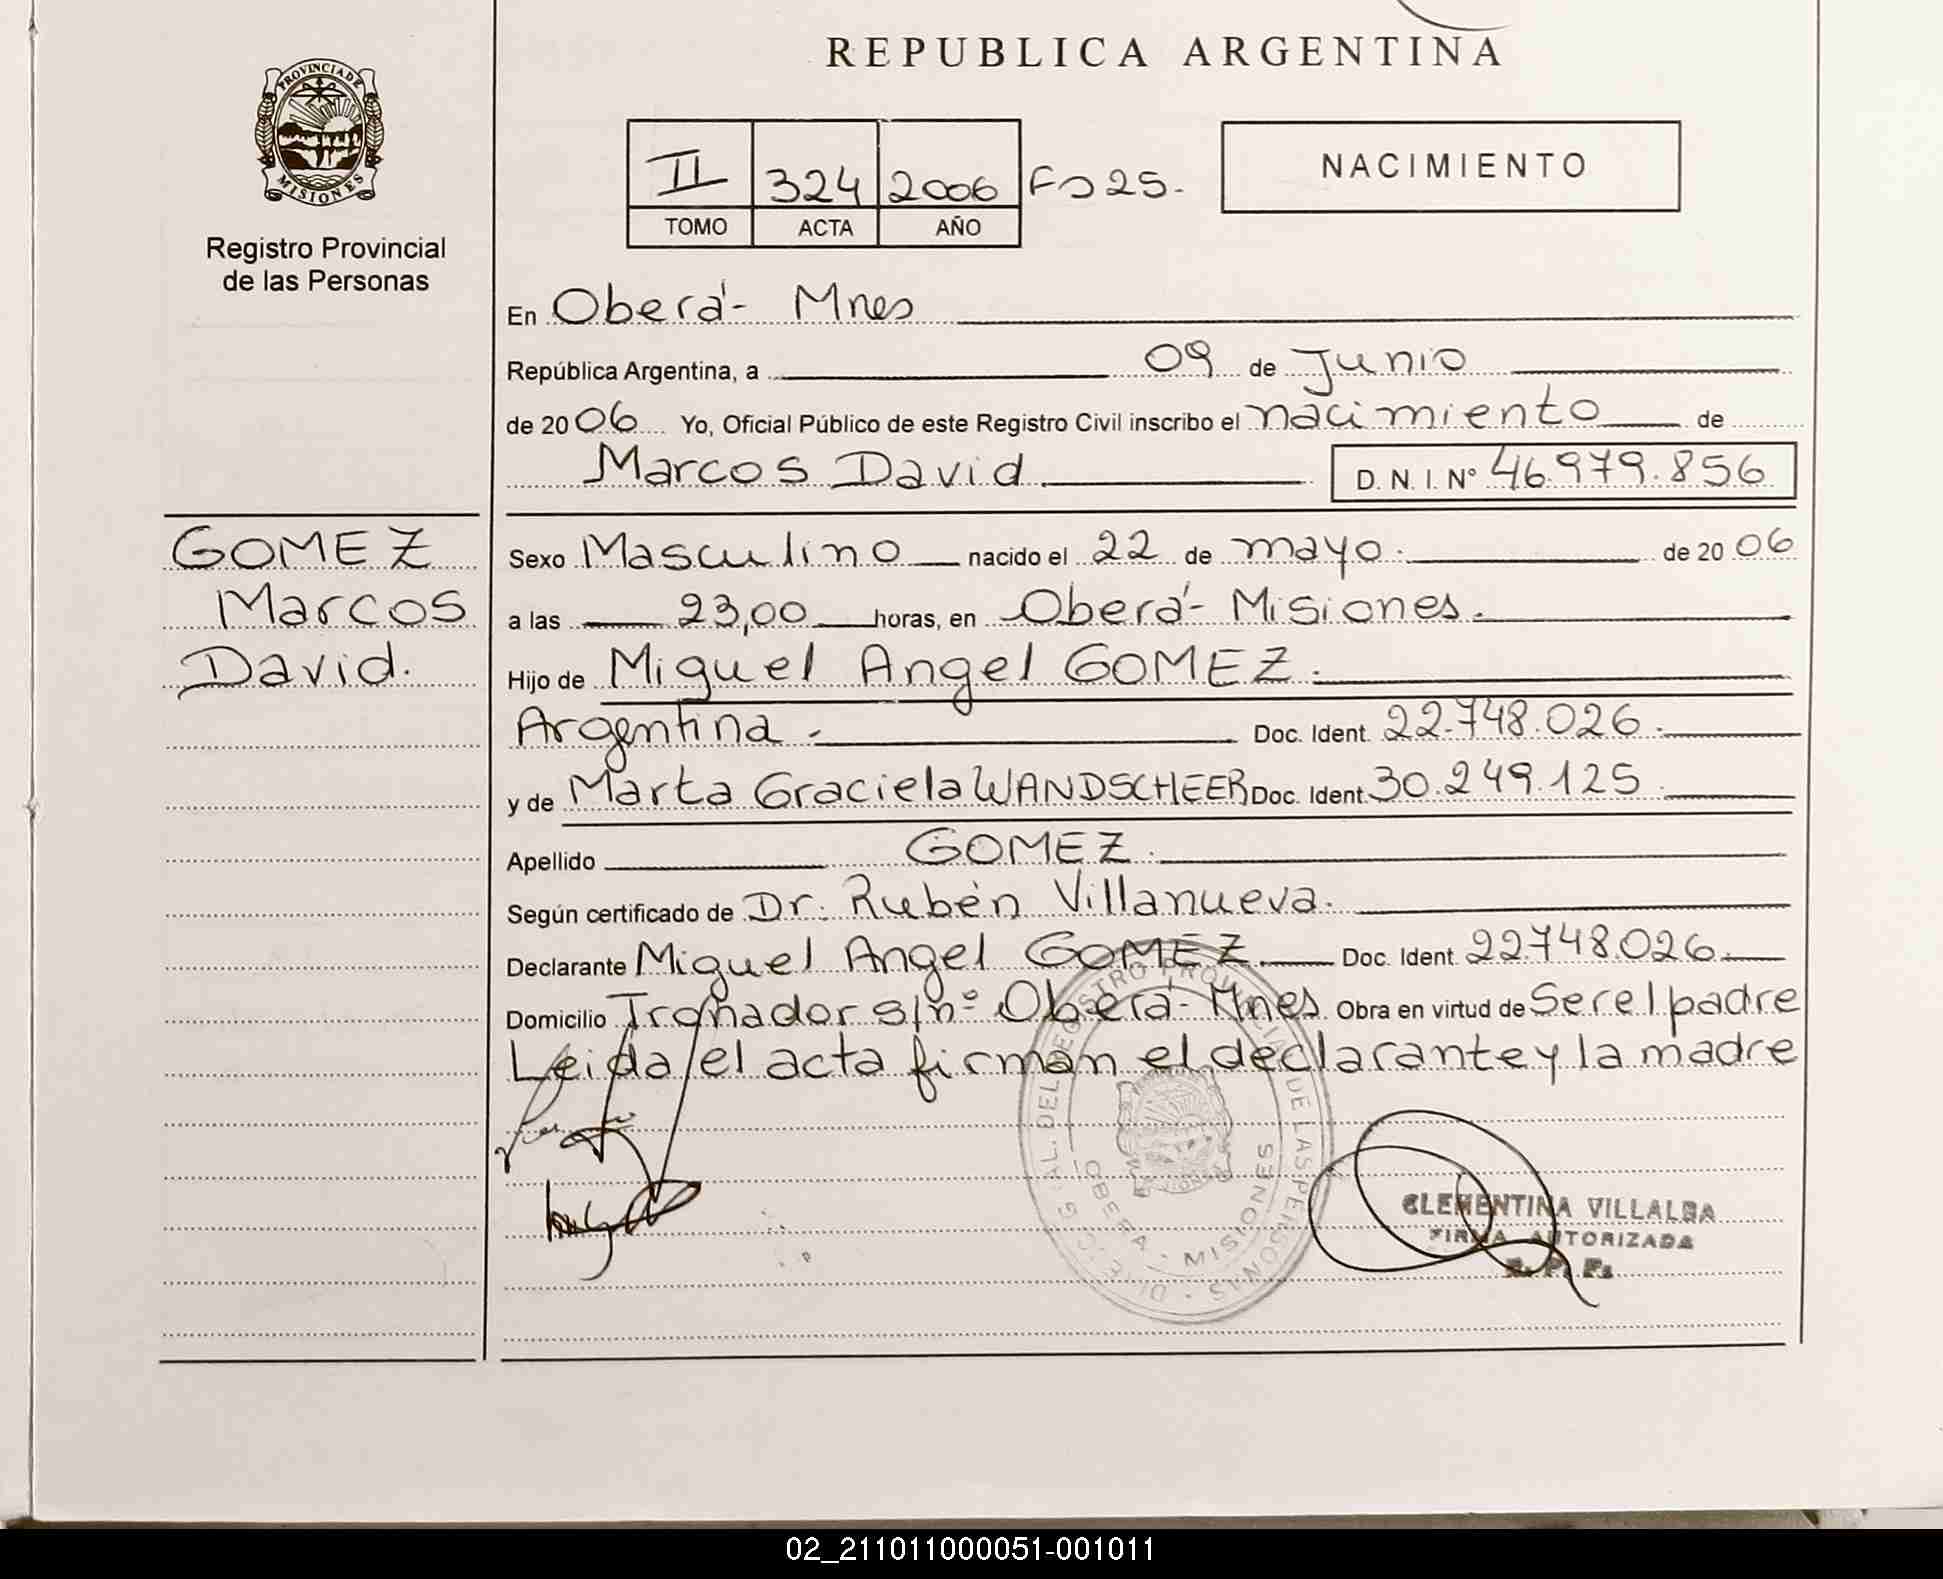 REPUBLICA ARGENTINA
PROVINCIA DE MISIONES
Registro Provincial
de las Personas
II 324 2006 Fº 25.
TOMO ACTA AÑO
NACIMIENTO
En Oberá - Mnes
República Argentina, a 09 de Junio
de 2006 Yo, Oficial Público de este Registro Civil inscribo el nacimiento de
Marcos David D. N. I. Nº 46.979.856
GOMEZ
Marcos
David.
Sexo Masculino nacido el 22 de mayo. de 2006
a las 23,00 horas, en Oberá - Misiones.
Hijo de Miguel Angel GOMEZ.
Argentina - Doc. Ident. 22.748.026.
y de Marta Graciela WANDSCHEER Doc. Ident. 30.249.125.
Apellido GOMEZ.
Según certificado de Dr. Rubén Villanueva.
Declarante Miguel Angel GOMEZ. Doc. Ident. 22.748.026.
Domicilio Tronador s/nº Oberá - Mnes Obra en virtud de Ser el padre
Leida el acta firman el declarante y la madre
OBERA - MISIONES
CLEMENTINA VILLALBA
FIRMA AUTORIZADA
R. P. P.
02_211011000051-001011